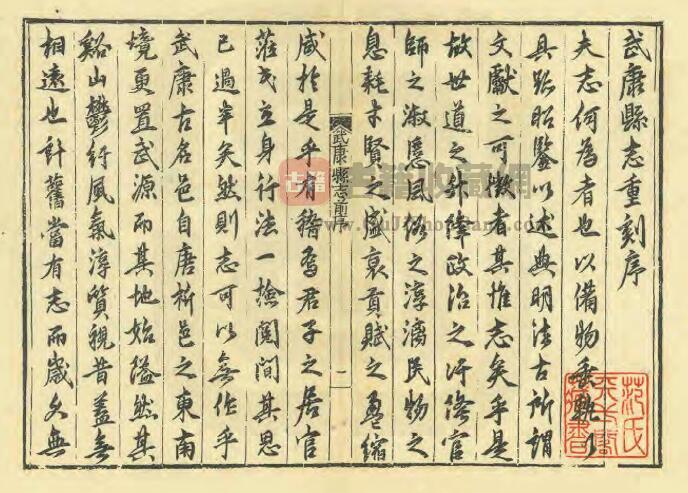 武康縣志重刻序
夫志何為者也以備物垂軌
具跡昭鑒以述典明法古所謂
文獻之可徵者其推志矣乎是
故世道之升降政治之汙隆官
師之淑慝風俗之淳漓民物之
息耗才賢之盛衰貢賦之盈縮
武康縣志前序
一
咸於是乎有稽焉君子之居官
蒞民立身行法一撿閱間其思
已過半矣然則志可以無作乎
武康古名邑自唐析邑之東南
境更置武源而其地始隘然其
谿山鬱紆風氣淳質視昔蓋無
相遠也計舊當有志而歲久無
范氏
天一閣
藏書
古籍
古籍收藏網